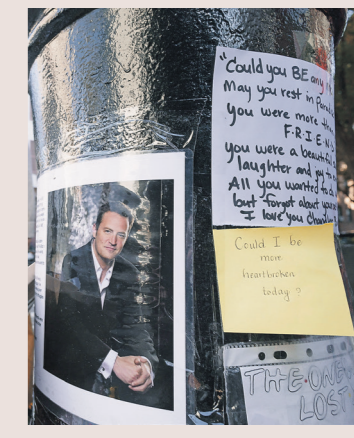 "Could you BE any
May you rest in
you were more
F·R·I·E·N·
you were a beautiful
laughter and joy to
All you wanted to
but forgot about
I love you
Could I be
more
heartbroken
today ?
THE·ONE
LOST